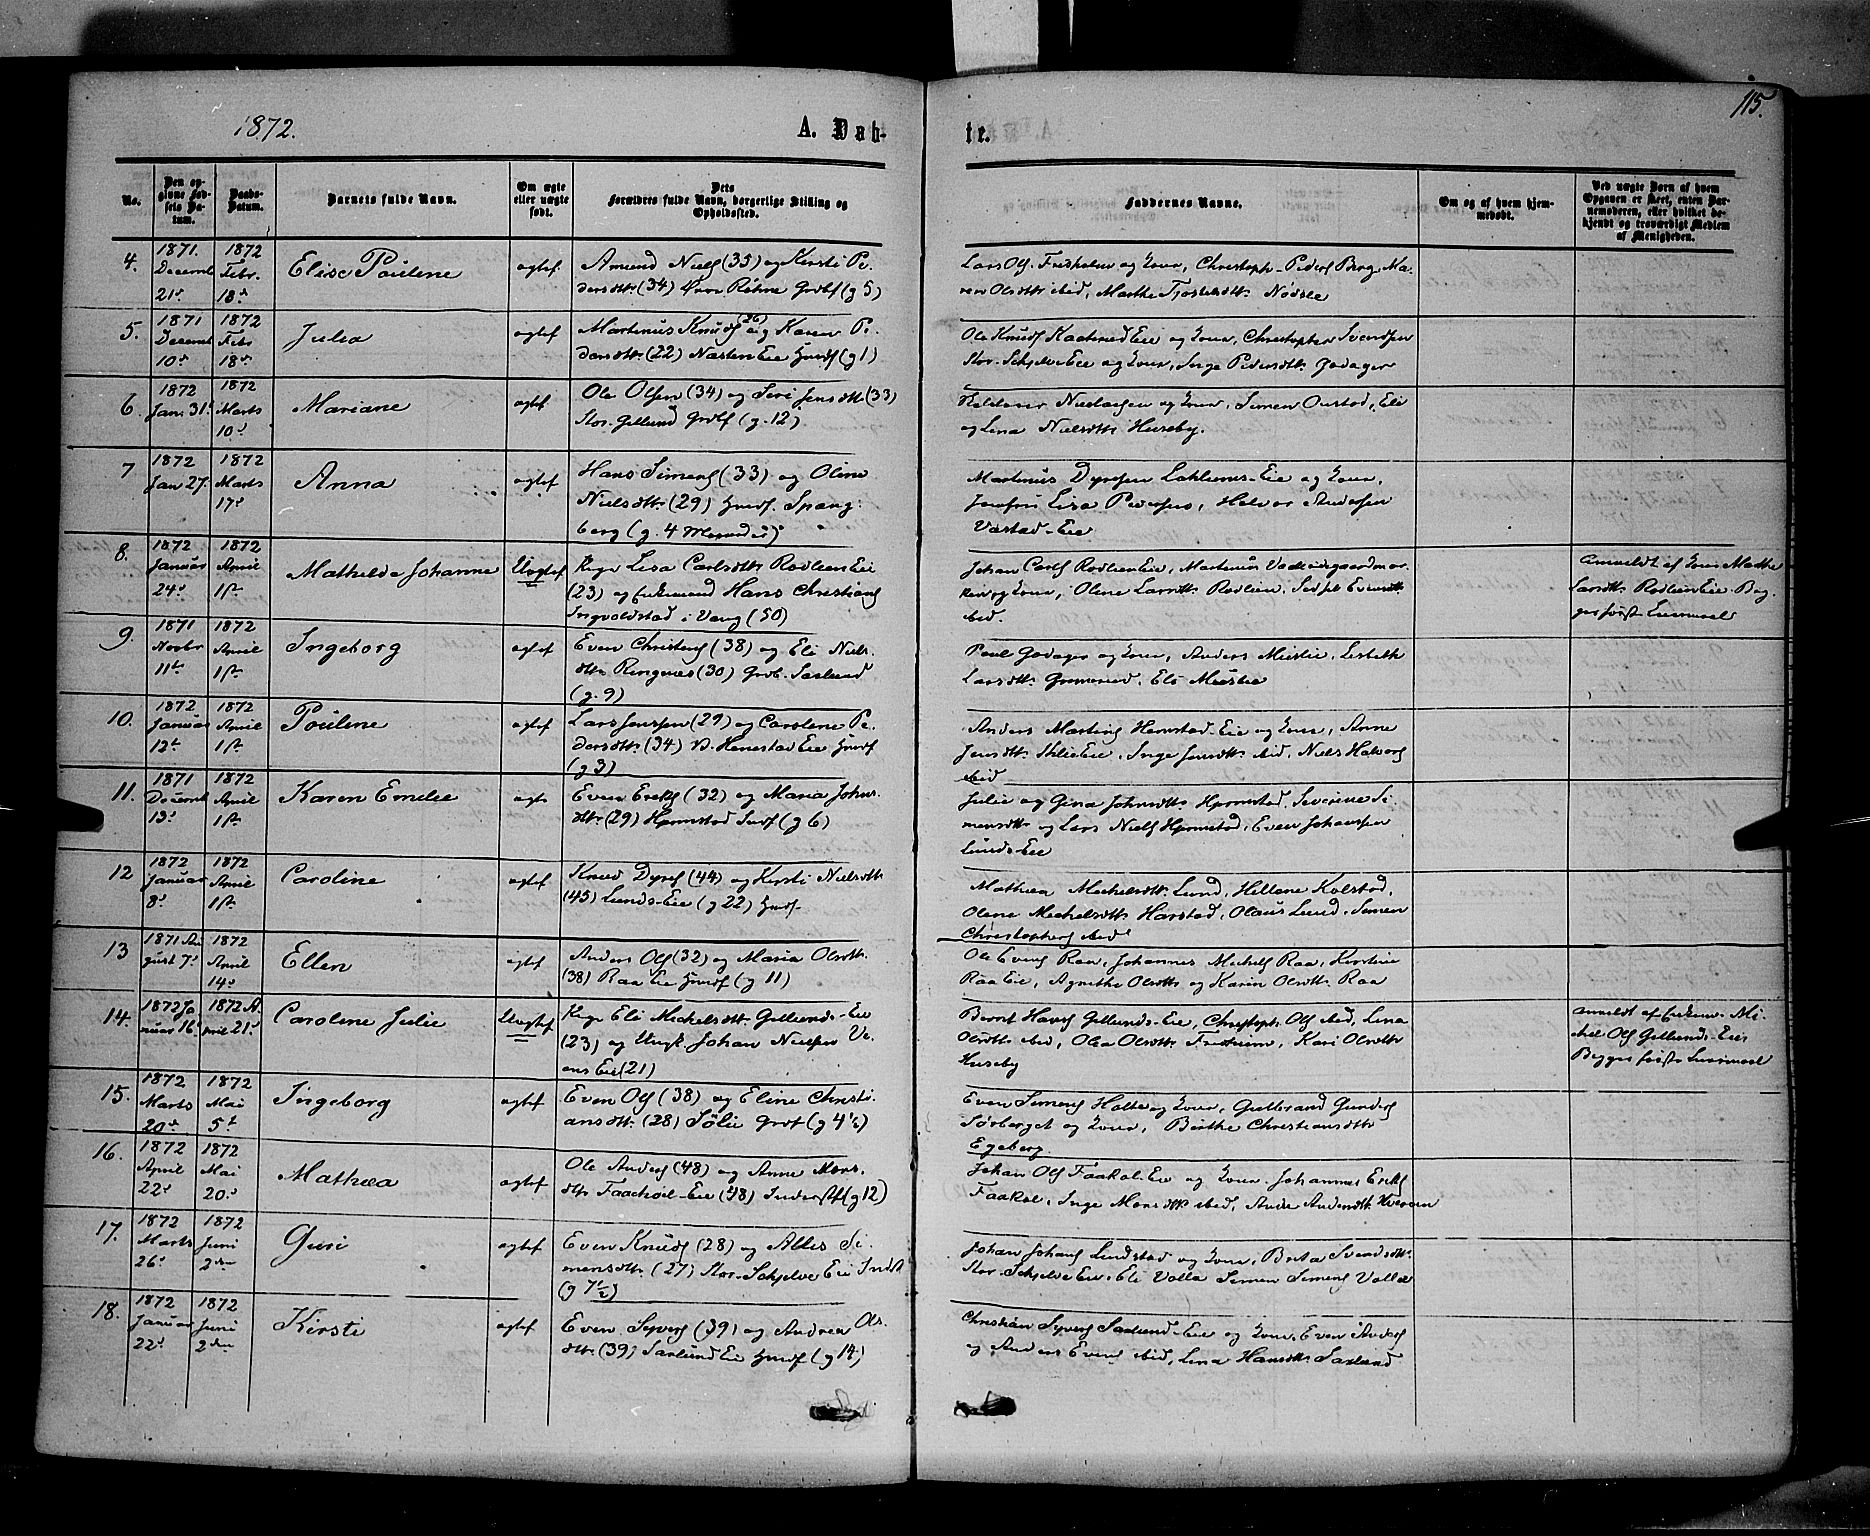 1872.
A. Døb-
te.
115.
No.
Den op-
givne Fød-
sels Da-
tum.
Daabs-
Datum.
Barnets fulde Navn.
Om ægte
eller uægte
født.
Dets
Forældres fulde Navn, borgerlige Stilling og
Opholdssted.
Faddernes Navne.
Om og af hvem hjem-
medøbt.
Ved uægte Børn af hvem
Opgaven er skeet, enten Bar-
nemoderen, eller hvilket be-
kjendt og troværdigt Medlem
af Menigheden.
4.
1871.
Decemb
21de
1872
Febr.
18de
Elise Poulene
ægtef
Amund Niels (35) og Kersti Pe-
dersdttr. (34) Øvre Røhne Grdbf (g 5)
Lars Ols. Fredholm og Kone, Christoph. Peders Berg, Ma-
ren Olsdttr ibid, Marthe Tjostelsdttr. Nødsle
5.
1871
Decemb
10de
1872
Febr
18de
Julia
ægtef
Martinus Knuds (26) og Karen Pe-
dersdttr. (22) Næsten Eie Husmf (g 1)
Ole Knuds Kaatrud Eie og Kone, Christopher Svendsen
Stor-Schjelve Eie og Kone, Inge Pedersdttr. Godager
6.
1872
Jan. 31te
1872
Marts
10de
Mariane
ægtef
Ole Olsen (34) og Siri Jensdttr (33)
Stor. Gillund Grdbf (g. 12)
Nielsen og Kone, Simen Oustad, Eli
og Lina Nielsdttr. Huseby.
7
1872
Jan 27.
1872
Marts
17de
Anna
ægtef
Hans Simens (33) og Oline
Nielsdttr. (29) Husmf. Spang-
berg (g. 4 Maaneder)
Martinus Dyresen Lahlums-Eie og Kone,
Jomfru Lisa Pedersen, Halvor Andersen
Vastad-Eie
8.
1872
Januar
24de
1872
April
1ste
Mathilde Johanne
Uægtef
Pige Lisa Carlsdttr. Rødlien Eie
(23) og Enkemand Hans Christians
Ingvoldstad i Vang (50)
Johan Carls Rodlien Eie, Martinus
og Kone, Olene Larsdttr. Rodlien. Evensdttr
ibid.
anmeldt af Kone Marthe
Larsdttr. Rodlien Eie. Beg-
ges første Leiermaal
9.
1871
Novbr
11te
1872
April
1ste
Ingeborg
ægtef
Even Christens (38) og Eli Niels-
dttr. Ringnes (30) Grdb. Saxlund
(g. 9)
Paul Godager og Kone, Anders Mislie, Lisbeth
Larsdttr. Grimerud, Eli Mislie
10.
1872
Januar
12te
1872
April
1ste
Poulene
ægtef
Lars Jensen (29) og Carolene Pe-
dersdttr. (34) Ø. Hemstad Eie Husmf
(g 3)
Anders Martins Hemstad-Eie og Kone, Anne
Jensdttr. Eie, Inge Jensdttr. ibid, Niels Halvors
ibid
11.
1871
Decemb
13de
1872
April
1ste
Karen Emelie
ægte
Even Eriks (32) og Maria Johns-
dttr. (29) Hjemstad Indf (g 6)
Julie og Gina Johnsdttr. Hjemstad, Severine Si-
mensdttr og Lars Niels Hjemstad, Even Johansen
Lunds-Eie
12
1872
Januar
8de
1872
April
1ste
Caroline
ægtef
Knud Dyres (44) og Kersti Nielsdttr
(45) Lunds-Eie (g 22) Husf.
Mathea Michelsdttr. Lund, Hellene Kolstad,
Olene Michelsdttr. Harstad, Olaus Lund, Simen
Christophers ibid
13
1871 Au
gust 7de
1872
April
14de
Ellen
ægtef
Anders Ols (32) og Maria Olsdttr.
(38) Raa Eie Husmf (g 11)
Ole Evens Raa, Johannes Michels Raa, Kirstine
Raa Eie, Agnethe Olsdttr og Karin Olsdttr. Raa
14.
1872 Ja
nuar 16de
1872 A
pril 21de
Carolene Julie
Uægtef
Pige Eli Michelsdttr. Gillunds-Eie
(23) og Ungk. Johan Nielsen Ve-
ens Eie (21)
Bernt Hans Gillunds-Eie, Christoph. Ols ibid, Lina
Olsdttr ibid, Olea Olsdttr. Kari Olsdttr
Huseby
anmeldt af Enkem. Mi-
kel Ols Gillunds-Eie
Begges første Leiermaal
15.
1872
Marts
20de
1872
Mai
5te
Ingeborg
ægtef
Even Ols (38) og Eline Christi-
ansdttr. (28) Sølie Grdf (g 4½)
Even Simens Holte og Kone, Gulbrand Gunders
Sørberget og Kone, Birthe Christiansdttr
Egeberg.
16.
1872
April
22de
1872
Mai
20de
Mathea
ægtef
Ole Anders (48) og Anne Mons-
dttr. Faachoel-Eie (48) Inderstf (g 12)
Johan Ols Faakol-Eie og Kone, Johannes Eriks
Faakol, Inge Monsdttr. ibid, Andersdttr
17.
1872
Marts
26de
1872
Juni
2den
Guri
ægtef
Even Knuds (28) og Alles Si-
mensdttr. (27) Stor. Schjelve Eie Indst
(g 7½)
Johan Johans Lundstad og Kone, Berta Svendsdttr.
Stor. Schjelve Eie, Eli Volla Simen Simens Volla
18.
1872
Januar
22de
1872
Juni
2den
Kirsti
ægtef
Even Syvers (39) og Andrea Ols-
dttr. (39) Saxlund Eie Husmf (g 14)
Christian Syvers Saxlund-Eie og Kone, Even Anders
og Anders Evens ibid, Lina Hansdttr. Saxlund